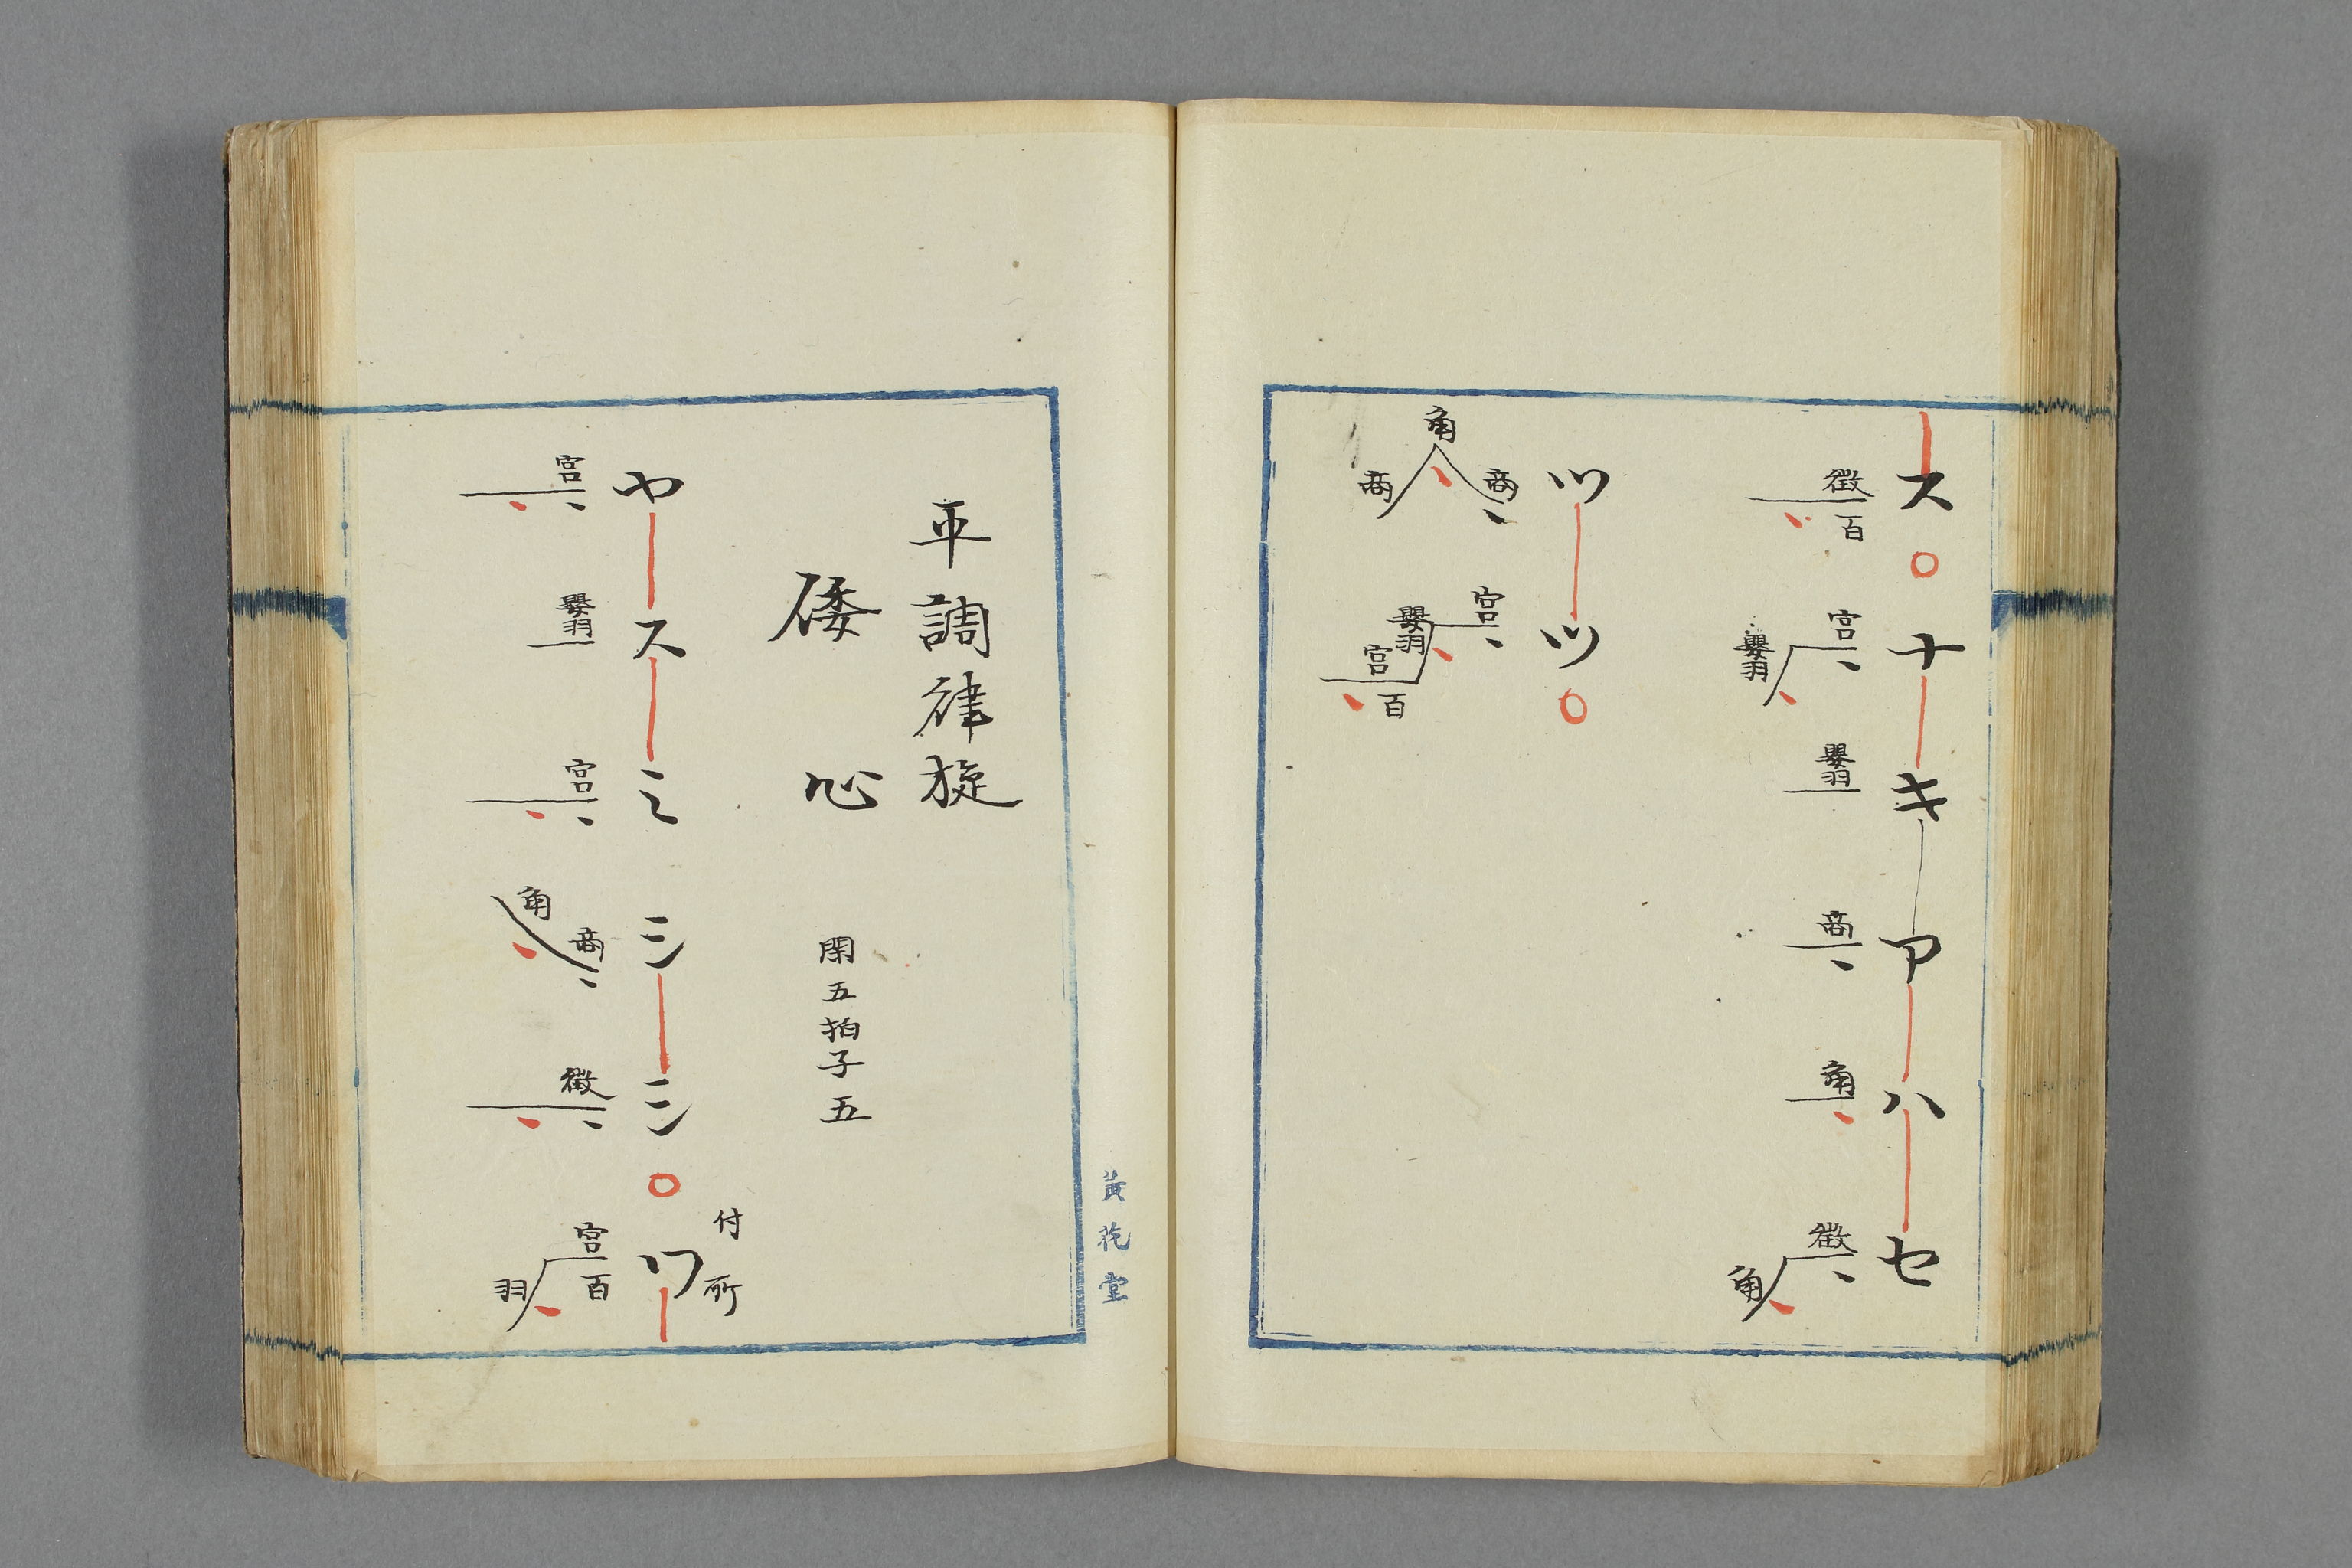 ス○ナキアハセ
徴百 宮嬰羽 嬰羽 商 角 徴角
ツツ○
商角商 宮嬰羽宮百
黄 堂
平調律旋
倭心 閑五拍子五
付所
ヤスミシシ○ツ
宮 嬰羽 宮 商角 徴 宮百羽